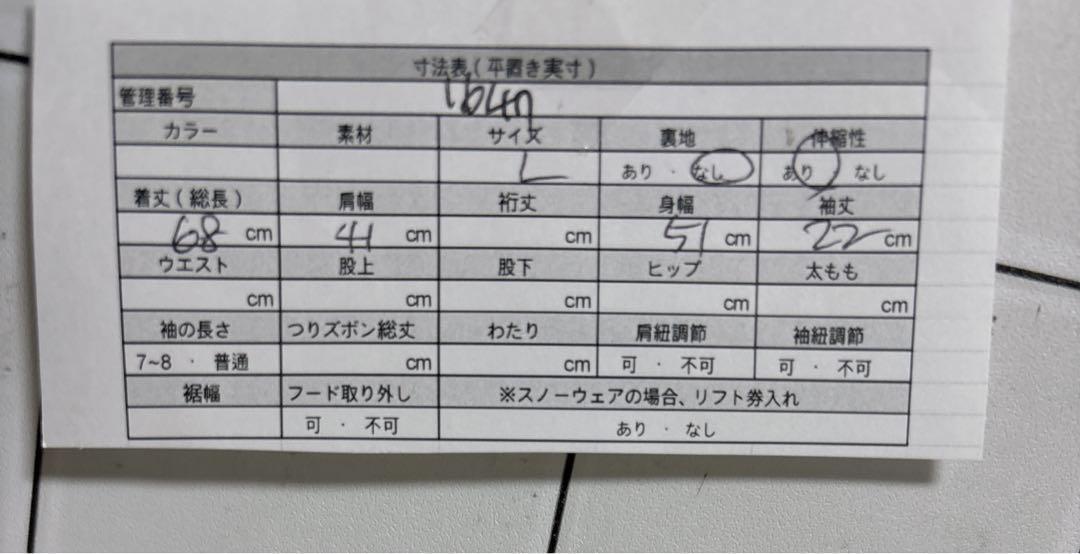 寸法表(平置き実寸)
管理番号
カラー 素材 サイズ 裏地 伸縮性
L あり ・ なし あり なし
着丈(総長) 肩幅 裄丈 身幅 袖丈
68 cm 41 cm cm 51 cm 22 cm
ウエスト 股上 股下 ヒップ 太もも
cm cm cm cm cm
袖の長さ つりズボン総丈 わたり 肩紐調節 袖紐調節
7~8 ・ 普通 cm cm 可 ・ 不可 可 ・ 不可
裾幅 フード取り外し ※スノーウェアの場合、リフト券入れ
可 ・ 不可 あり ・ なし